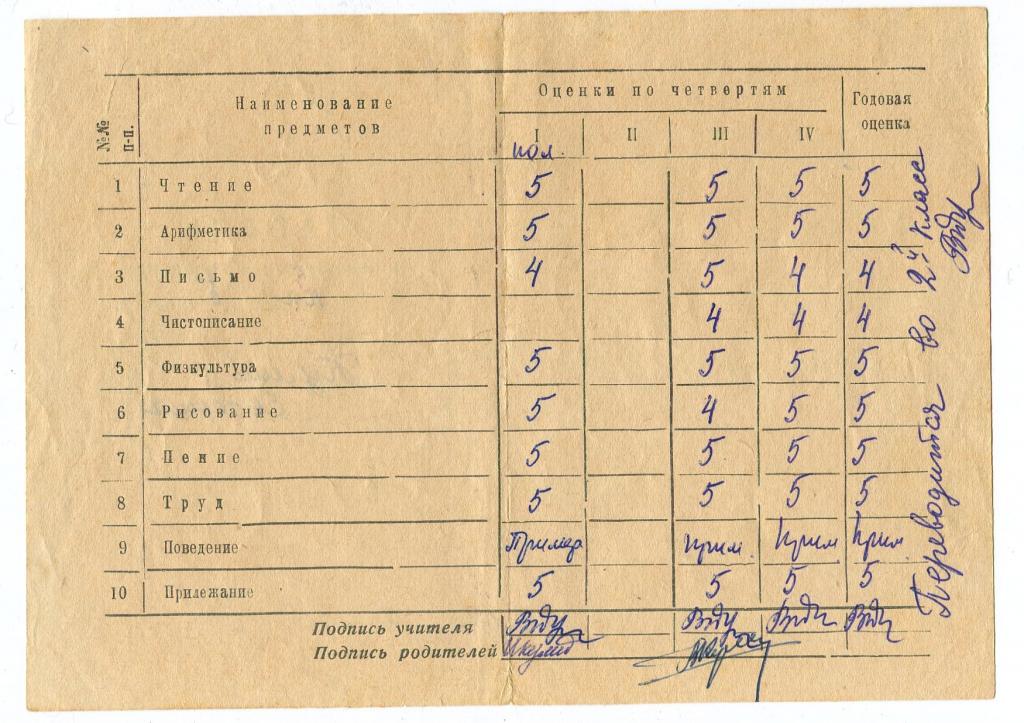 №№ п-п.
Наименование предметов
Оценки по четвертям
Годовая оценка
I II III IV
пол.
1 Чтение 5 5 5 5
2 Арифметика 5 5 5 5
3 Письмо 4 5 4 4
4 Чистописание 4 4 4
5 Физкультура 5 5 5 5
6 Рисование 5 4 5 5
7 Пение 5 5 5 5
8 Труд 5 5 5 5
9 Поведение Пример прим. прим прим.
10 Прилежание 5 5 5 5
Подпись учителя
Подпись родителей
Переводится во 2й класс